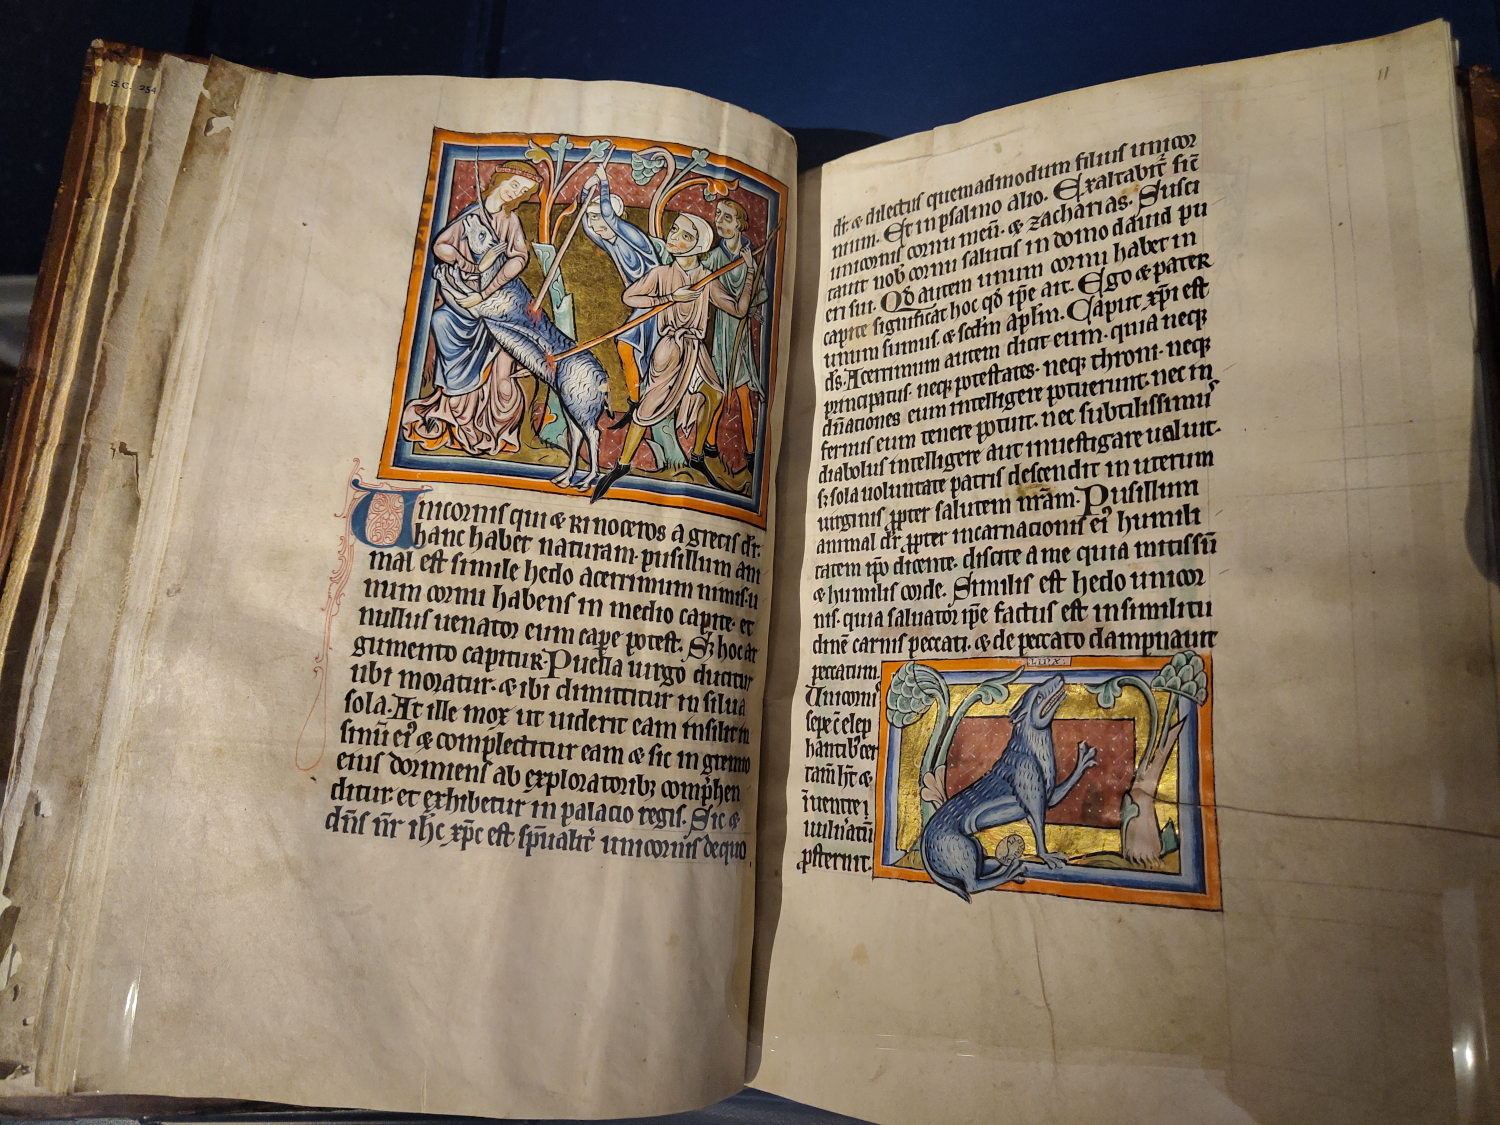 S.C. 254
Unicornis qui & rinoceros a grecis dr̄.
hanc habet naturam. pusillum ani
mal est simile hedo acerrimum nimis. u
num cornu habens in medio capite. et
nullus uenator eum cape potest. Sꝫ hoc ar
gumento capitur. Puella uirgo ducitur
ubi moratur. & ibi dimittitur in silua
sola. At ille mox ut uiderit eam insilit in
sinū eiꝰ & complectitur eam & sic in gremio
eius dormiens ab exploratoribꝫ comp̄hen
ditur. et exhibetur in palacio regis. Sic &
dn̄s nr̄ ih̄c xp̄c est sp̄ualit̄ unicornis de quo
11
dr̄. & dilectus quemadmodum filius unicor
nium. Et in psalmo alio. Exaltabit̄ sic̄
unicornis cornu meū. & zacharias. Susci
tauit nob̄ cornu salutis in domo dauid pu
eri sui. Qd̄ autem unum cornu habet in
capite significat hoc qd̄ ip̄e ait. Ego & pater
unum sumus. & scd̄m ap̄lm̄. Caput xp̄i est
ds̄. Acerrimum autem dicit eum. quia neqꝫ
principatus. neqꝫ potestates. neqꝫ throni. neqꝫ
dn̄ationes eum intelligere potuerunt. nec in
fernus eum tenere potuit. nec subtilissimuꝰ
diabolus intelligere aut inuestigare ualuit.
sꝫ sola uoluntate patris descendit in uterum
uirginis ꝓpter salutem nr̄am. Pusillum
animal dr̄ ꝓpter incarnacionis eiꝰ humili
tatem ip̄o dicente. discite a me quia mitis sū
& humilis corde. Similis est hedo unicor
nis. quia saluator ip̄e factus est in similitu
dinē carnis peccati. & de peccato dampnauit
peccatum.
Unicorniꝰ
sepe c̄ elep
hantibꝰ cer
tam̄ h̄t &
ī uentre ı
uuln̄atū
ꝓsternit.
LUPX.